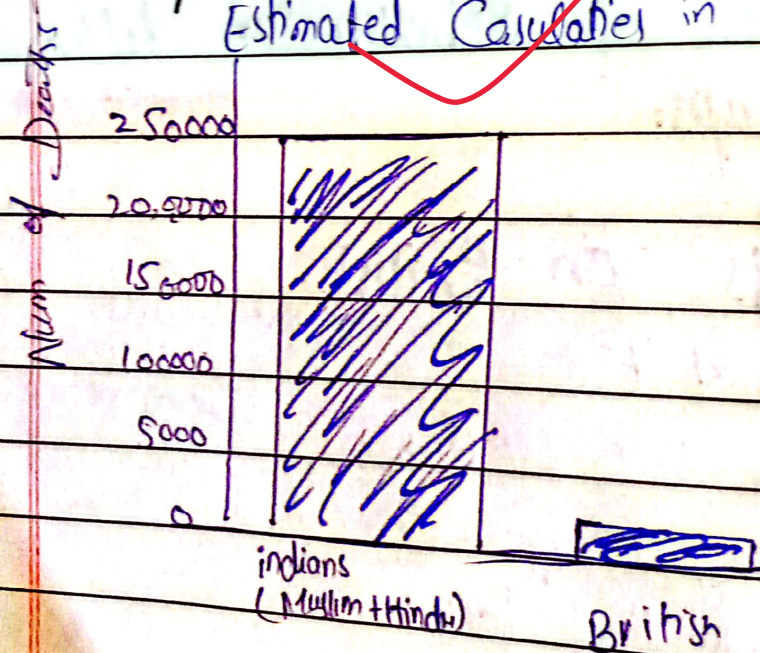 Estimated Casulaties in
Num of Deaths
250000
200000
150000
100000
5000
0
indians
(Muslim + Hindu)
British